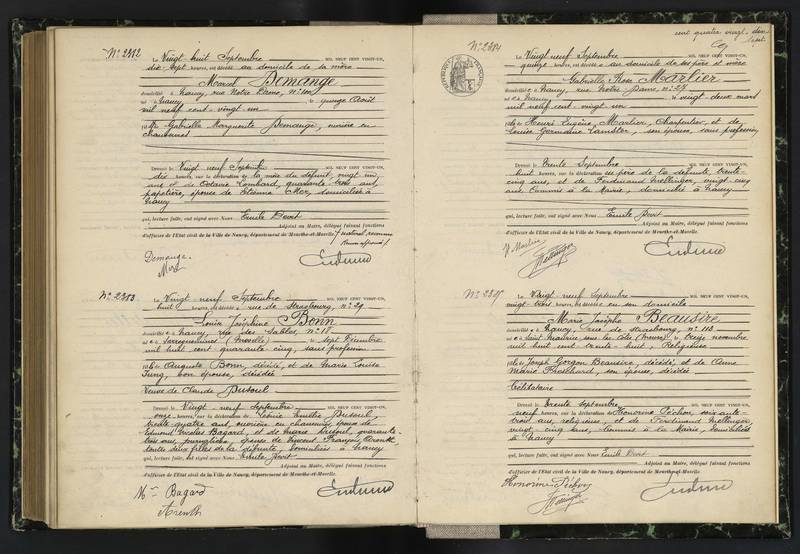 N° 2382
Le Vingt huit Septembre MIL NEUF CENT VINGT-UN,
dix sept heures, est décédé au domicile de la mère
Marcel Demange
domicilié à Nancy, rue Notre Dame, n°
né à Nancy le quinze Août
mil neuf cent vingt un
fils Gabrielle Marguerite Demange, ouvrière en
chaussures
Dressé le Vingt neuf Septembre MIL NEUF CENT VINGT-UN,
dix heures, sur la déclaration de la mère du défunt, vingt un
ans et de Octavie Lombard, quarante trois ans,
papetière, épouse de Etienne domiciliées à
Nancy
qui, lecture faite, ont signé avec Nous Emile Devit
Adjoint au Maire, délégué faisant fonctions
d'officier de l'Etat civil de la Ville de Nancy, département de Meurthe-et-Moselle.
Demange.
N° 2383
Le Vingt neuf Septembre MIL NEUF CENT VINGT-UN,
huit heures, est décédée rue de Strasbourg, n° 29
Louise Joséphine Bonn
domiciliée à Nancy, rue des Sables, n° 18
née à Sarreguemines (Moselle) le sept Décembre
mil huit cent quarante cinq, sans profession
fille de Auguste Bonn, décédé, et de Marie Louise
Jung, son épouse, décédée
Veuve de Claude Dusoul
Dressé le Vingt neuf Septembre MIL NEUF CENT VINGT-UN,
onze heures, sur la déclaration de Léonie Dusoul,
trente quatre ans, ouvrière en chaussures, épouse de
Edmond Nicolas Bagard, et de Marie Dusoul, quarante
trois ans, journalière, épouse de Vincent François
toutes deux filles de la défunte, domiciliées à Nancy
qui, lecture faite, ont signé avec Nous Emile Devit
Adjoint au Maire, délégué faisant fonctions
d'officier de l'Etat civil de la Ville de Nancy, département de Meurthe-et-Moselle.
Bagard
cent quatre vingt dix
sept.
N° 2384
Le Vingt neuf Septembre MIL NEUF CENT VINGT-UN,
quinze heures, est décédée au domicile de ses père et mère
Gabrielle Rose Marlier
domiciliée à Nancy, rue Notre Dame, n° 28
née à Nancy le vingt deux mars
mil neuf cent vingt un
fille de Henri Eugène Marlier, Charpentier, et de
Louise Germaine son épouse, sans profession
Dressé le Trente Septembre MIL NEUF CENT VINGT-UN,
huit heures, sur la déclaration du père de la défunte, trente
cinq ans, et de Ferdinand Mellinger, vingt-cinq
ans Commis à la Mairie, domicilié à Nancy
qui, lecture faite, ont signé avec Nous Emile Devit
Adjoint au Maire, délégué faisant fonctions
d'officier de l'Etat civil de la Ville de Nancy, département de Meurthe-et-Moselle.
H Marlier
Mellinger
N° 2385
Le Vingt neuf Septembre MIL NEUF CENT VINGT-UN,
vingt trois heures, est décédée en son domicile
Marie Josèphe Beausire
domiciliée à Nancy, rue de Strasbourg, n° 113
née à Saint Maurice sous les Côtes (Meuse) le treize novembre
mil huit cent trente huit, Religieuse
fille de Joseph Gorgon Beausire, décédé, et de Anne
Marie son épouse, décédée
Célibataire
Dressé le Trente septembre MIL NEUF CENT VINGT-UN,
neuf heures, sur la déclaration de Honorine Péchon, soixante
trois ans, religieuse, et de Ferdinand Mellinger,
vingt-cinq ans, commis à la Mairie, domiciliés
à Nancy
qui, lecture faite, ont signé avec Nous Emile Devit
Adjoint au Maire, délégué faisant fonctions
d'officier de l'Etat civil de la Ville de Nancy, département de Meurthe-et-Moselle.
Honorine Péchon
Mellinger